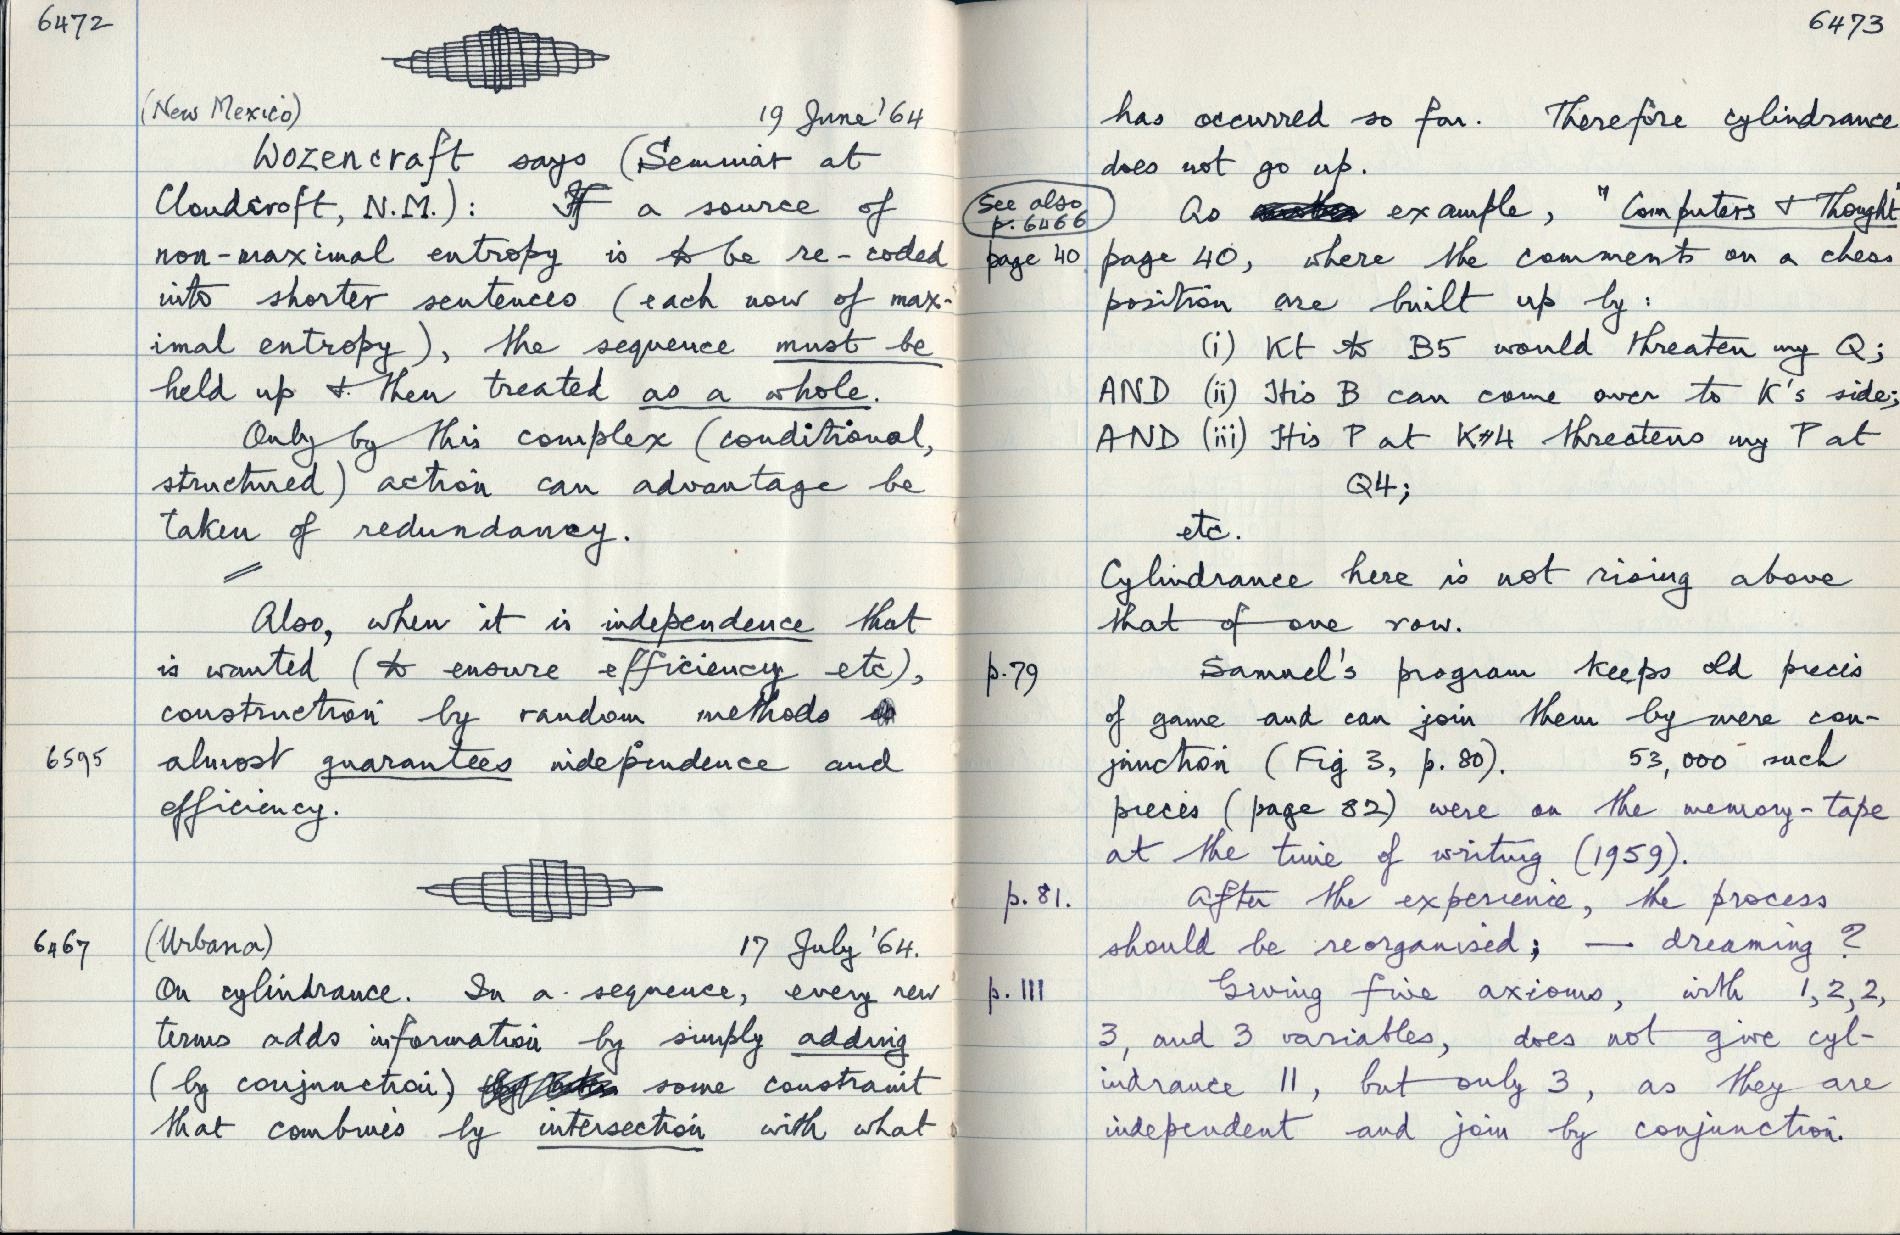 6472
(New Mexico) 19 June '64
Wozencraft says (Seminar at
Cloudcroft, N.M.): If a source of
non-maximal entropy is to be re-coded
into shorter sentences (each now of max-
imal entropy), the sequence must be
held up & then treated as a whole.
Only by this complex (conditional,
structured) action can advantage be
taken of redundancy.
Also, when it is independence that
is wanted (to ensure efficiency etc),
construction by random methods
6595 almost guarantees independence and
efficiency.
6467 (Urbana) 17 July '64.
On cylindrance. In a sequence, every new
terms adds information by simply adding
(by conjunction) some constraint
that combines by intersection with what
6473
has occurred so far. Therefore cylindrance
does not go up.
See also
p. 6466
As example, "Computers & Thought"
page 40 page 40, where the comments on a chess
position are built up by:
(i) Kt to B5 would threaten my Q;
AND (ii) His B can come over to K's side;
AND (iii) His P at K4 threatens my P at
Q4;
etc.
Cylindrance here is not rising above
that of one row.
p.79 Samuel's program keeps old pieces
of game and can join them by mere con-
junction (Fig 3, p. 80). 53,000 such
pieces (page 82) were on the memory-tape
at the time of writing (1959).
p. 81. After the experience, the process
should be reorganised; — dreaming?
p. 111 Giving five axioms, with 1, 2, 2,
3, and 3 variables, does not give cyl-
indrance 11, but only 3, as they are
independent and join by conjunction.